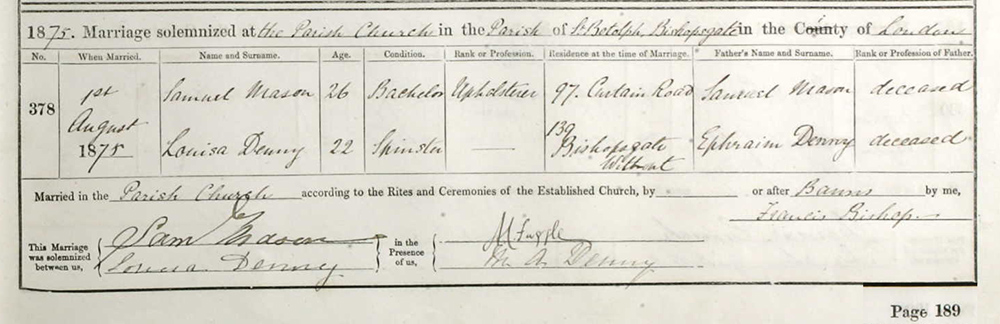 1875. Marriage solemnized at the Parish Church in the Parish of St Botolph Bishopsgate in the County of London
No. When Married. Name and Surname. Age. Condition. Rank or Profession. Residence at the time of Marriage. Father's Name and Surname. Rank or Profession of Father.
378 1st August 1875 Samuel Mason 26 Bachelor Upholsterer 97. Curtain Road Samuel Mason deceased
Louisa Denny 22 Spinster — 139 Bishopsgate Without Ephraim Denny deceased
Married in the Parish Church according to the Rites and Ceremonies of the Established Church, by or after Banns by me,
Francis Bishop
This Marriage was solemnized between us, Sam Mason in the Presence of us,
Louisa Denny M A Denny
Page 189